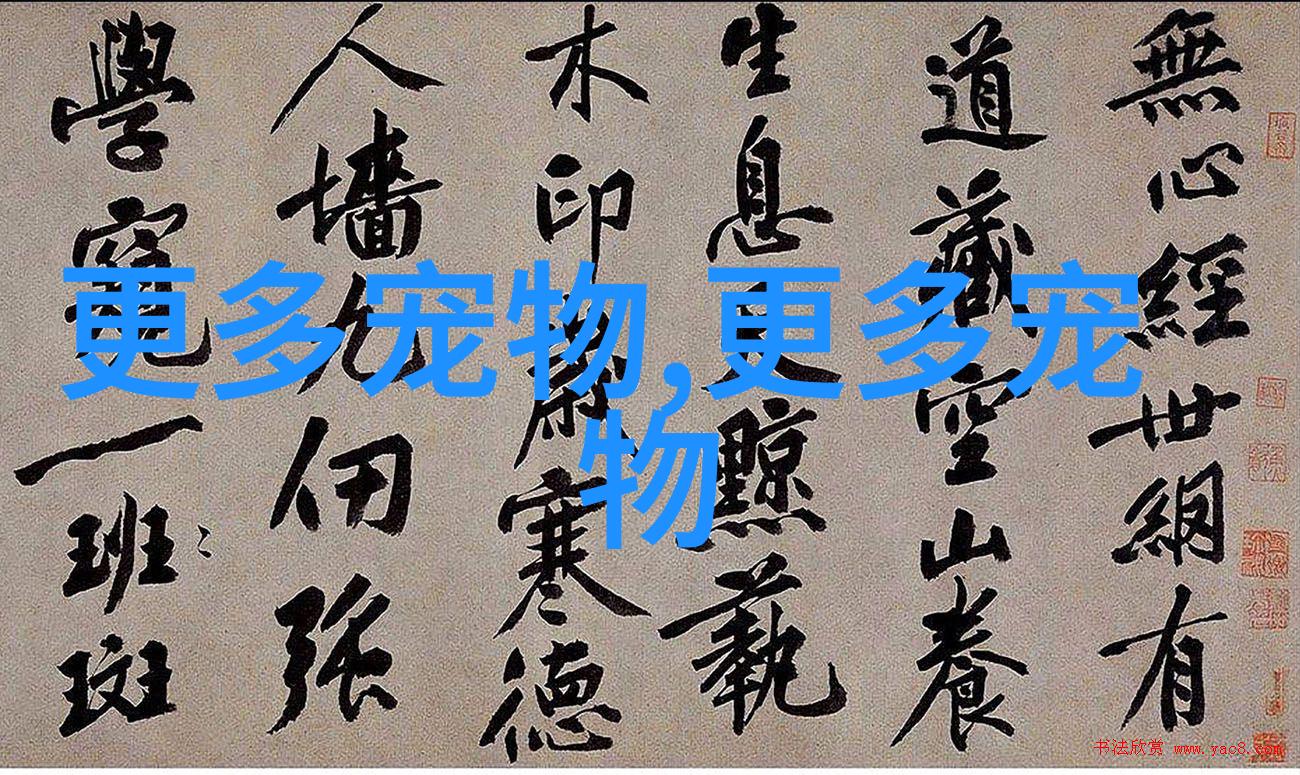 無心經世網有
道藏空山養
生息更黥藝
木印肅寒德
人墻允仞張
學窺一班〻
斑
更多宠物,更多宠
物
书法欣赏 www.yac8.com